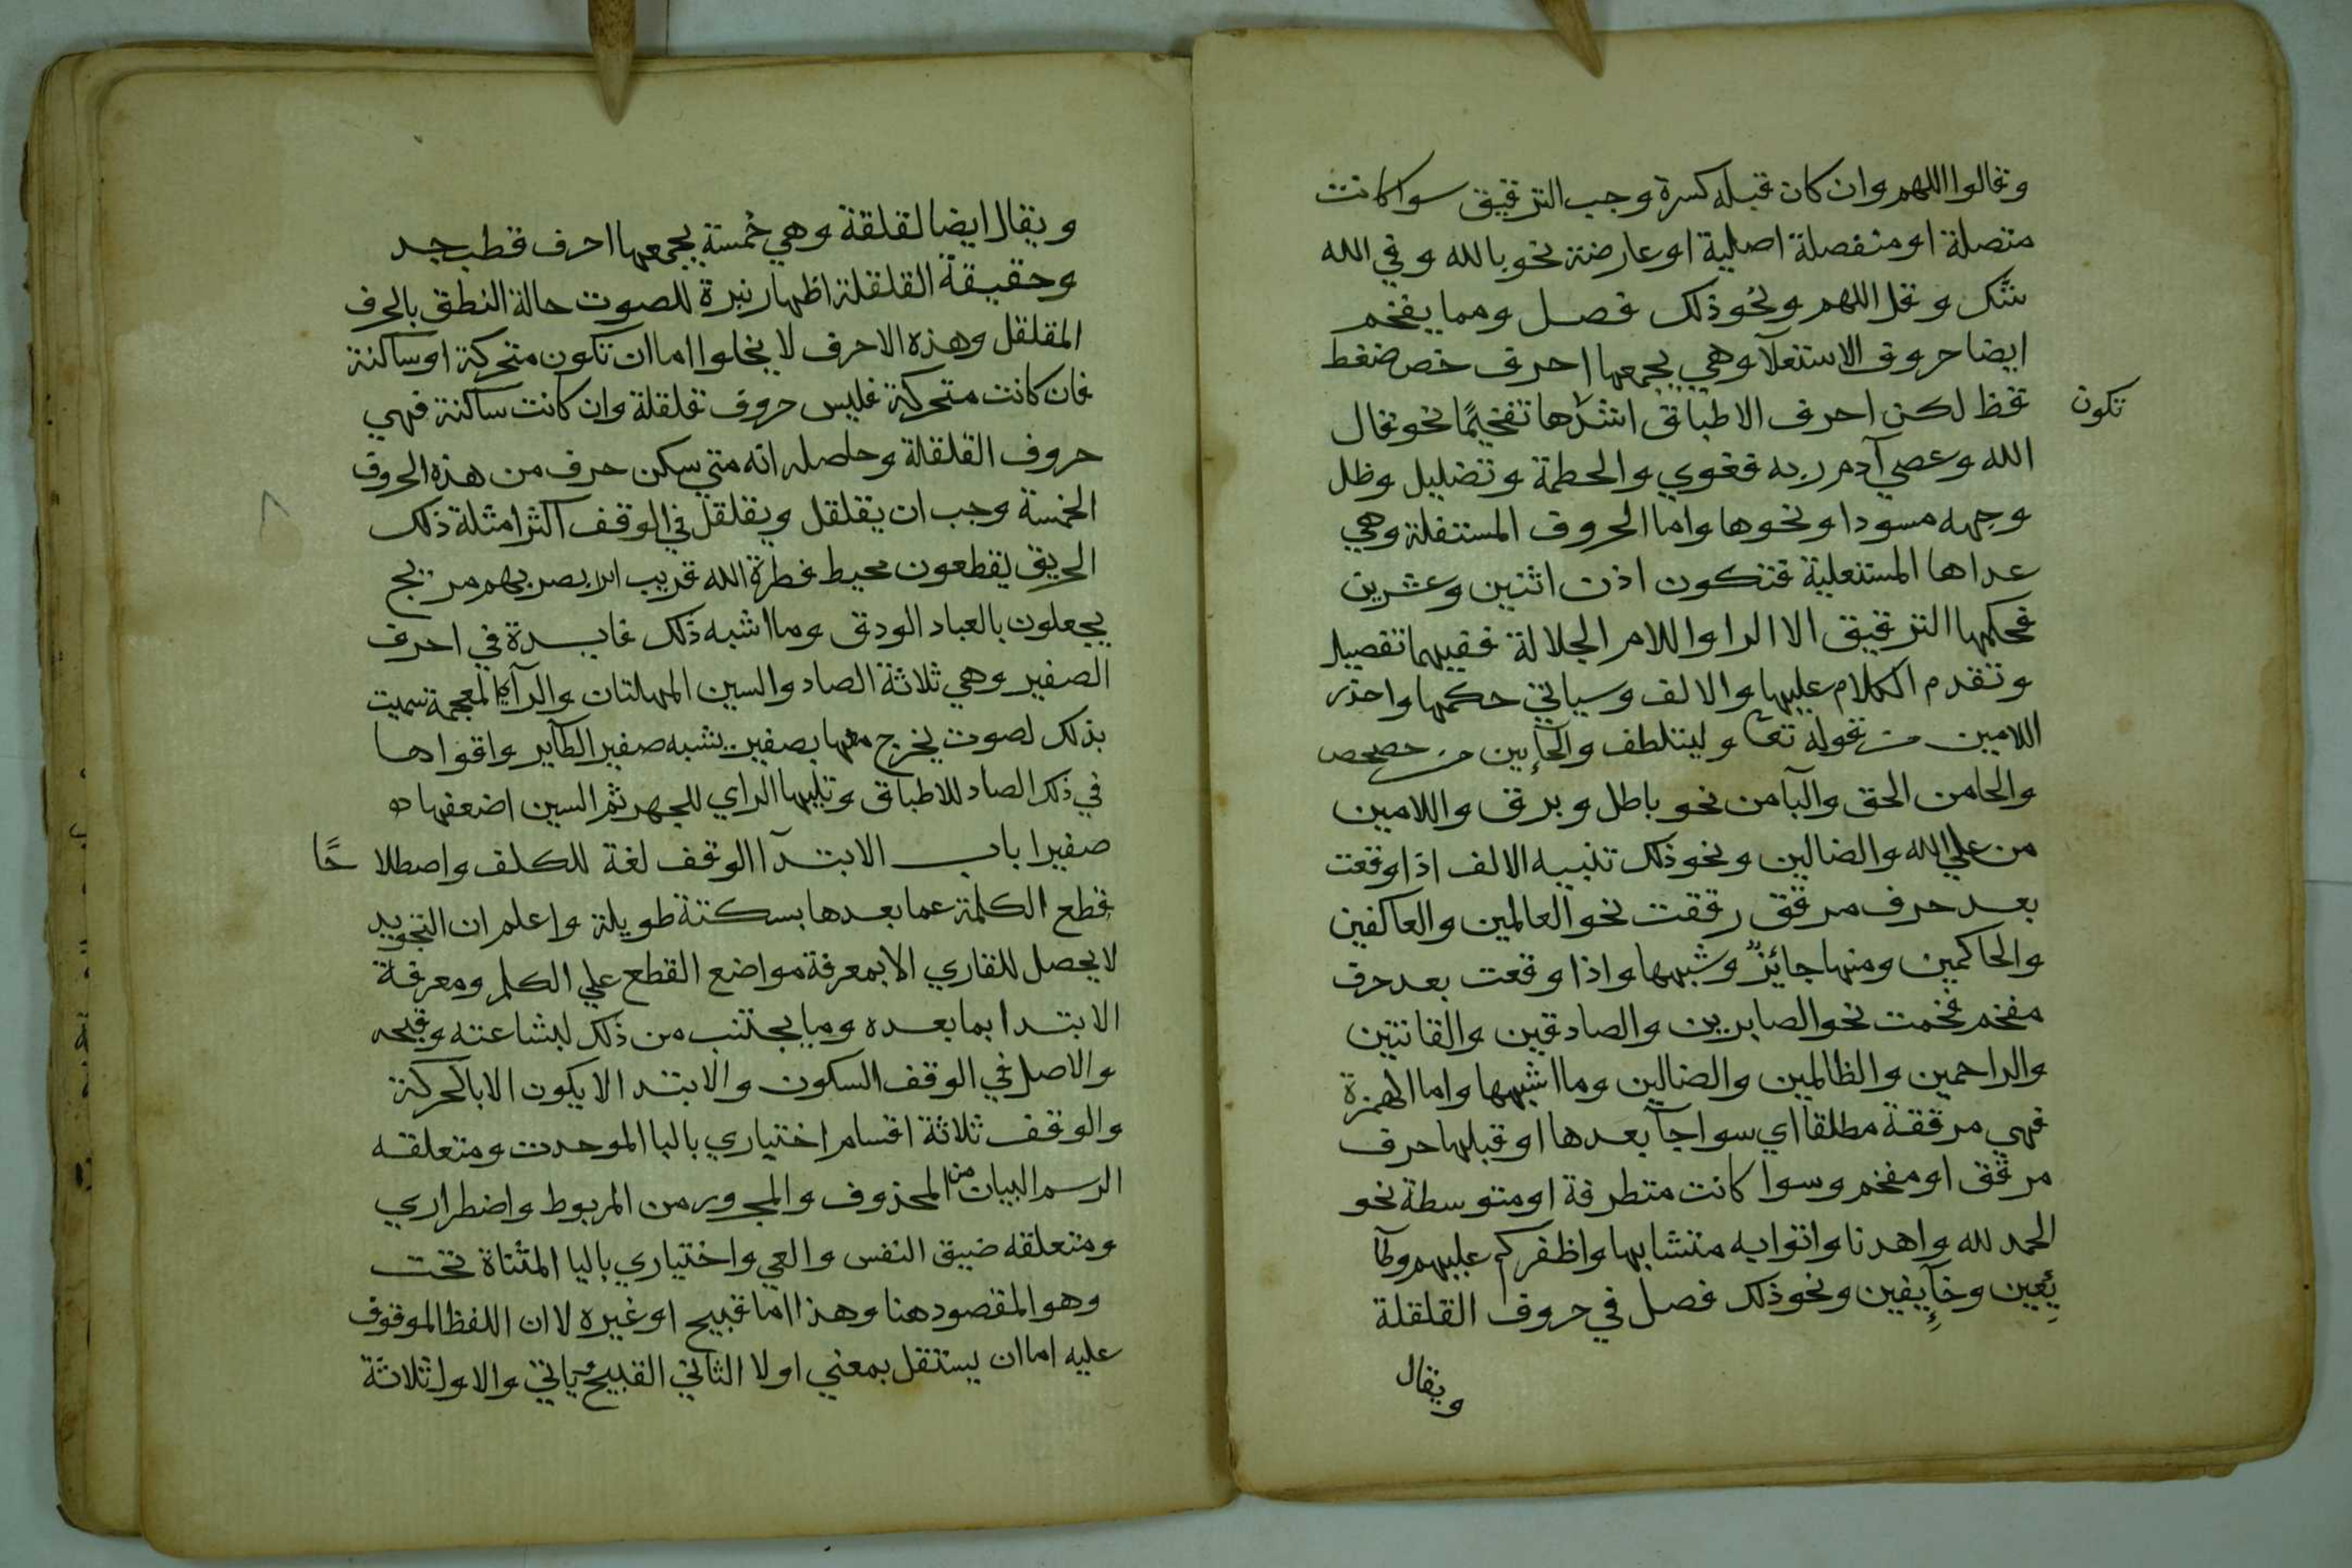 وقالوا اللهم وان كان قبله كسرة وجب الترقيق سوا كانت
متصلة او منفصلة اصلية او عارضة نحو بالله وفي الله
شك وقل اللهم ونحو ذلك فصل ومما يفخم
ايضا حروف الاستعلآ وهي يجمعها احرف خص ضغط
قظ لكن احرف الاطباق اشدها تفخيمًا نحو قال
تكون
الله وعصي آدم ربه فغوي والحطمة وتضليل وظل
وجهه مسودا ونحوها واما الحروف المستفلة وهي
عداها المستعلية فتكون اذن اثنين وعشرين
فحكمها الترقيق الا الرا واللام الجلالة ففيهما تفصيل
وتقدم الكلام عليها والالف وسياتي حكمها واحذر
اللامين من قوله تعا وليتلطف والحآيين من حصحص
والحا من الحق والبآ من نحو باطل وبرق واللامين
من علي الله والضالين ونحو ذلك تنبيه الالف اذا وقعت
بعد حرف مرقق رققت نحو العالمين والعاكفين
والحاكمين ومنها جائز وشبهها واذا وقعت بعد حرف
مفخم فخمت نحو الصابرين والصادقين والقانتين
والراحمين والظالمين والضالين وما اشبهها واما الهمزة
فهي مرققة مطلقا اي سوا جآ بعدها او قبلها حرف
مرقق او مفخم وسوا كانت متطرفة او متوسطة نحو
الحمد لله واهدنا واتوا به متشابها واظفركم عليهم وطآ
ئعين وخآيفين ونحو ذلك فصل في حروف القلقلة
ويقال
ويقال ايضا لقلقة وهي خمسة يجمعها احرف قطب جد
وحقيقة القلقلة اظهار نبرة للصوت حالة النطق بالحرف
المقلقل وهذه الاحرف لا يخلوا اما ان تكون متحركة او ساكنة
فان كانت متحركة فليس حروف قلقلة وان كانت ساكنة فهي
حروف القلقلة وحاصله انه متي سكن حرف من هذه الحروف
الخمسة وجب ان يقلقل ويقلقل في الوقف اكثر امثلة ذلك
الحريق يقطعون محيط فطرة الله قريب ابصر بهم مريج
يجعلون بالعباد الودق وما اشبه ذلك فايدة في احرف
الصفير وهي ثلاثة الصاد والسين المهملتان والزآي المعجمة سميت
بذلك لصوت يخرج معها بصفير يشبه صفير الطآير واقواها
في ذلك الصاد للاطباق وتليها الزاي للجهر ثم السين اضعفها
صفيرا باب الابتدآ الوقف لغة للكلف واصطلاحًا
قطع الكلمة عما بعدها بسكتة طويلة واعلم ان التجويد
لا يحصل للقاري الا بمعرفة مواضع القطع علي الكلم ومعرفة
الابتدا بما بعده وما يجتنب من ذلك لبشاعته وقبحه
والاصل في الوقف السكون والابتدا لا يكون الا بالحركة
والوقف ثلاثة اقسام اختياري باليا الموحدت ومتعلقه
الرسم لبيان من المحذوف والمجرور من المربوط واضطراري
ومتعلقه ضيق النفس والعي واختياري باليا المثناة تحت
وهو المقصود هنا وهذا اما قبيح او غيره لان اللفظ الموقوف
عليه اما ان يستقل بمعني او لا الثاني القبيح ياتي والاول ثلاثة